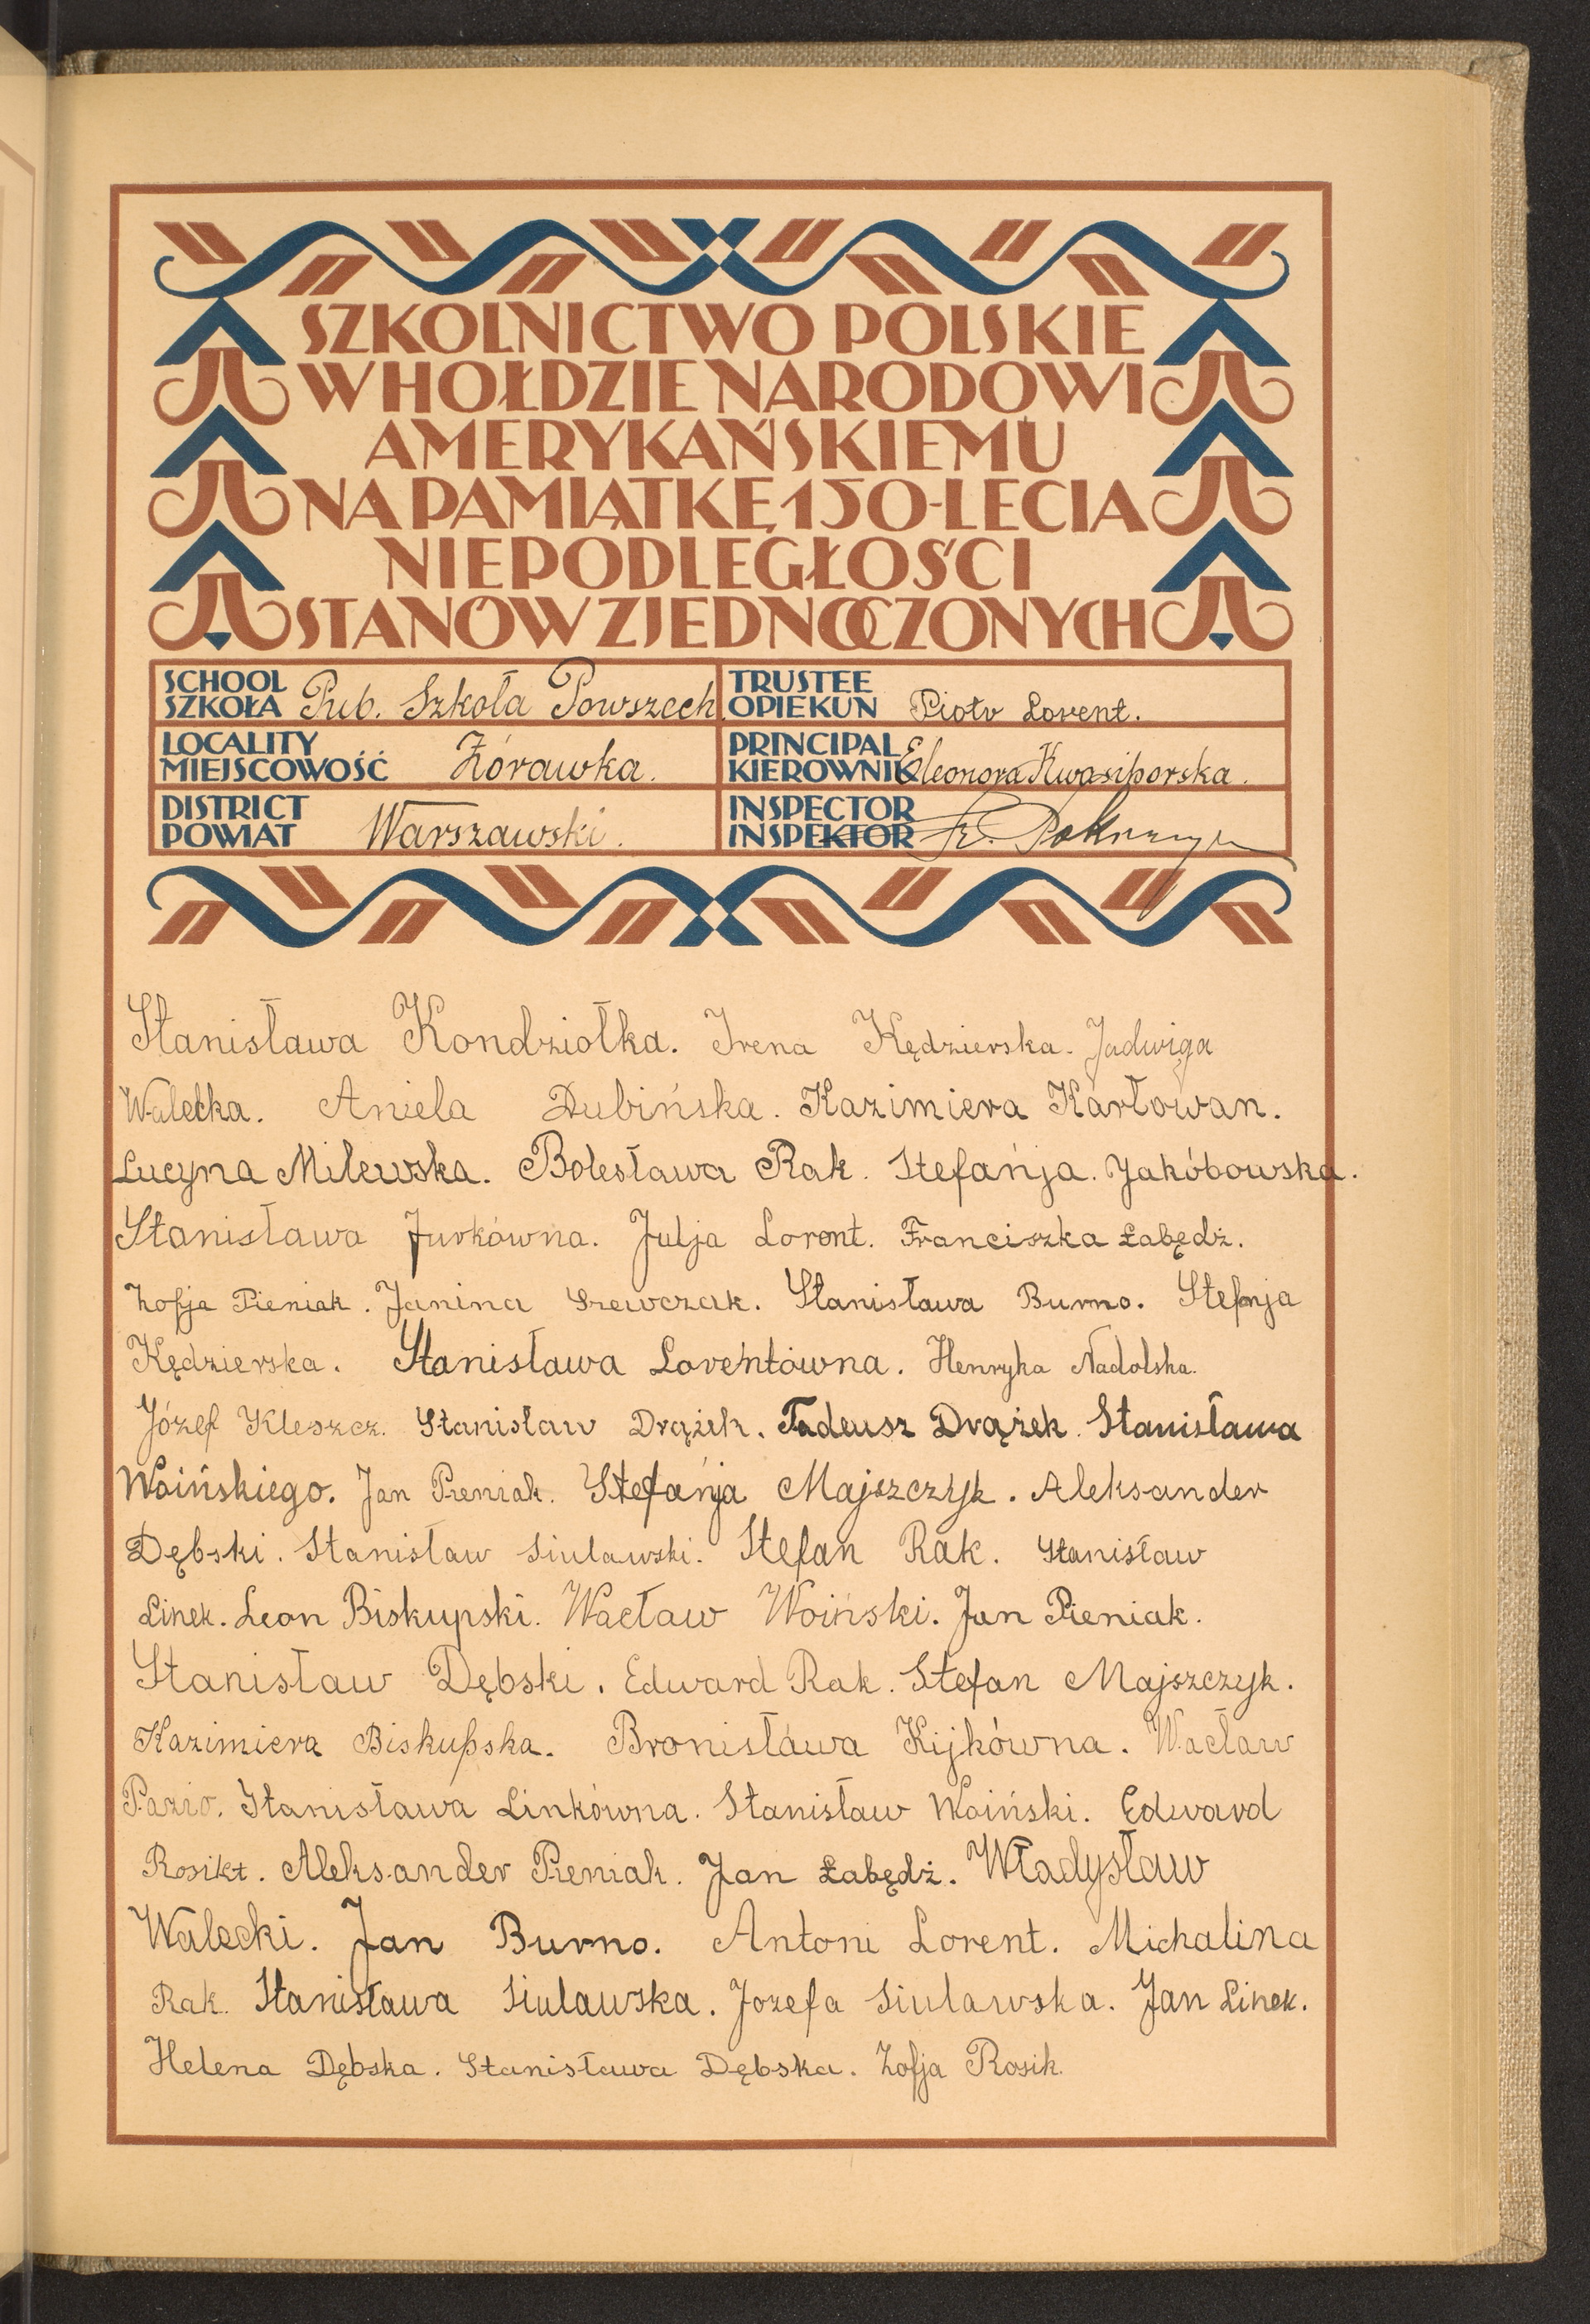 SZKOLNICTWO POLSKIE
W HOŁDZIE NARODOWI
AMERYKAŃSKIEMU
NA PAMIĄTKĘ 150-LECIA
NIEPODLEGŁOŚCI
STANÓW ZJEDNOCZONYCH
SCHOOL
SZKOŁA Pub. Szkoła Powszech
TRUSTEE
OPIEKUN Piotr Lorent.
LOCALITY
MIEJSCOWOŚĆ Żórawka.
PRINCIPAL
KIEROWNIK Eleonora Kwasiborska.
DISTRICT
POWIAT Warszawski.
INSPECTOR
INSPEKTOR
Stanisława Kondziołka. Irena Kędzierska. Jadwiga
Walecka. Aniela Dubińska. Kazimiera Karłowan.
Lucyna Milewska. Bolesława Rak. Stefańja. Jakóbowska.
Stanisława Jurkówna. Julja Loront. Franciszka Łabędź.
Zofja Pieniak. Janina Szewczak. Stanisława Burno. Stefnja
Kędzierska. Stanisława Lorentówna. Henryka Nadolska.
Józef Kleszcz. Stanisław Drążek. Tadeusz Drążek. Stanisława
Woińskiego. Jan Pieniak. Stefańja Majszczyk. Aleksander
Dębski. Stanisław Siulawski. Stefan Rak. Stanisław
Linek. Leon Biskupski. Wacław Woiński. Jan Pieniak.
Stanisław Dębski. Edward Rak. Stefan Majszczyk.
Kazimiera Biskupska. Bronisława Kijkówna. Wacław
Pazio. Stanisława Linkówna. Stanisław Woiński. Edward
Rosikt. Aleksander Pieniak. Jan Łabędź. Władysław
Walecki. Jan Burno. Antoni Lorent. Michalina
Rak. Stanisława Siulawska. Jozefa Siulawska. Jan Linek.
Helena Dębska. Stanisława Dębska. Zofja Rosik.